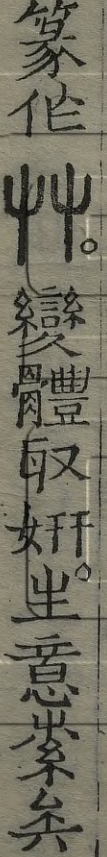 篆作艸。變體取妍。生意索矣